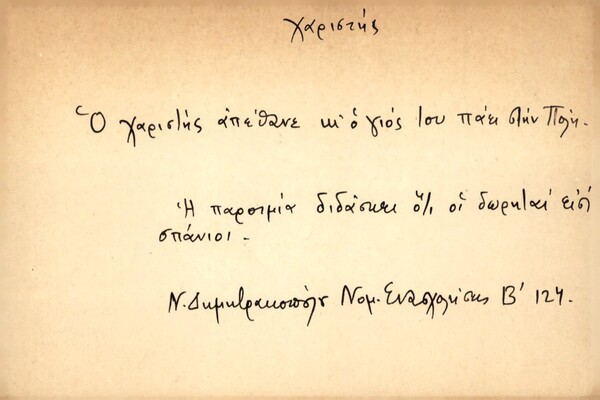 χαριστής
Ὁ χαριστής ἀπέθανε κι' ὁ γιός του πάει στήν Πόλη.
Ἡ παροιμία διδάσκει ὅτι οἱ δωρηταί εἰσί
σπάνιοι.
Ν. Δημητρακοπούλου Νομ. Ἐνασχολήσεις Β' 124.